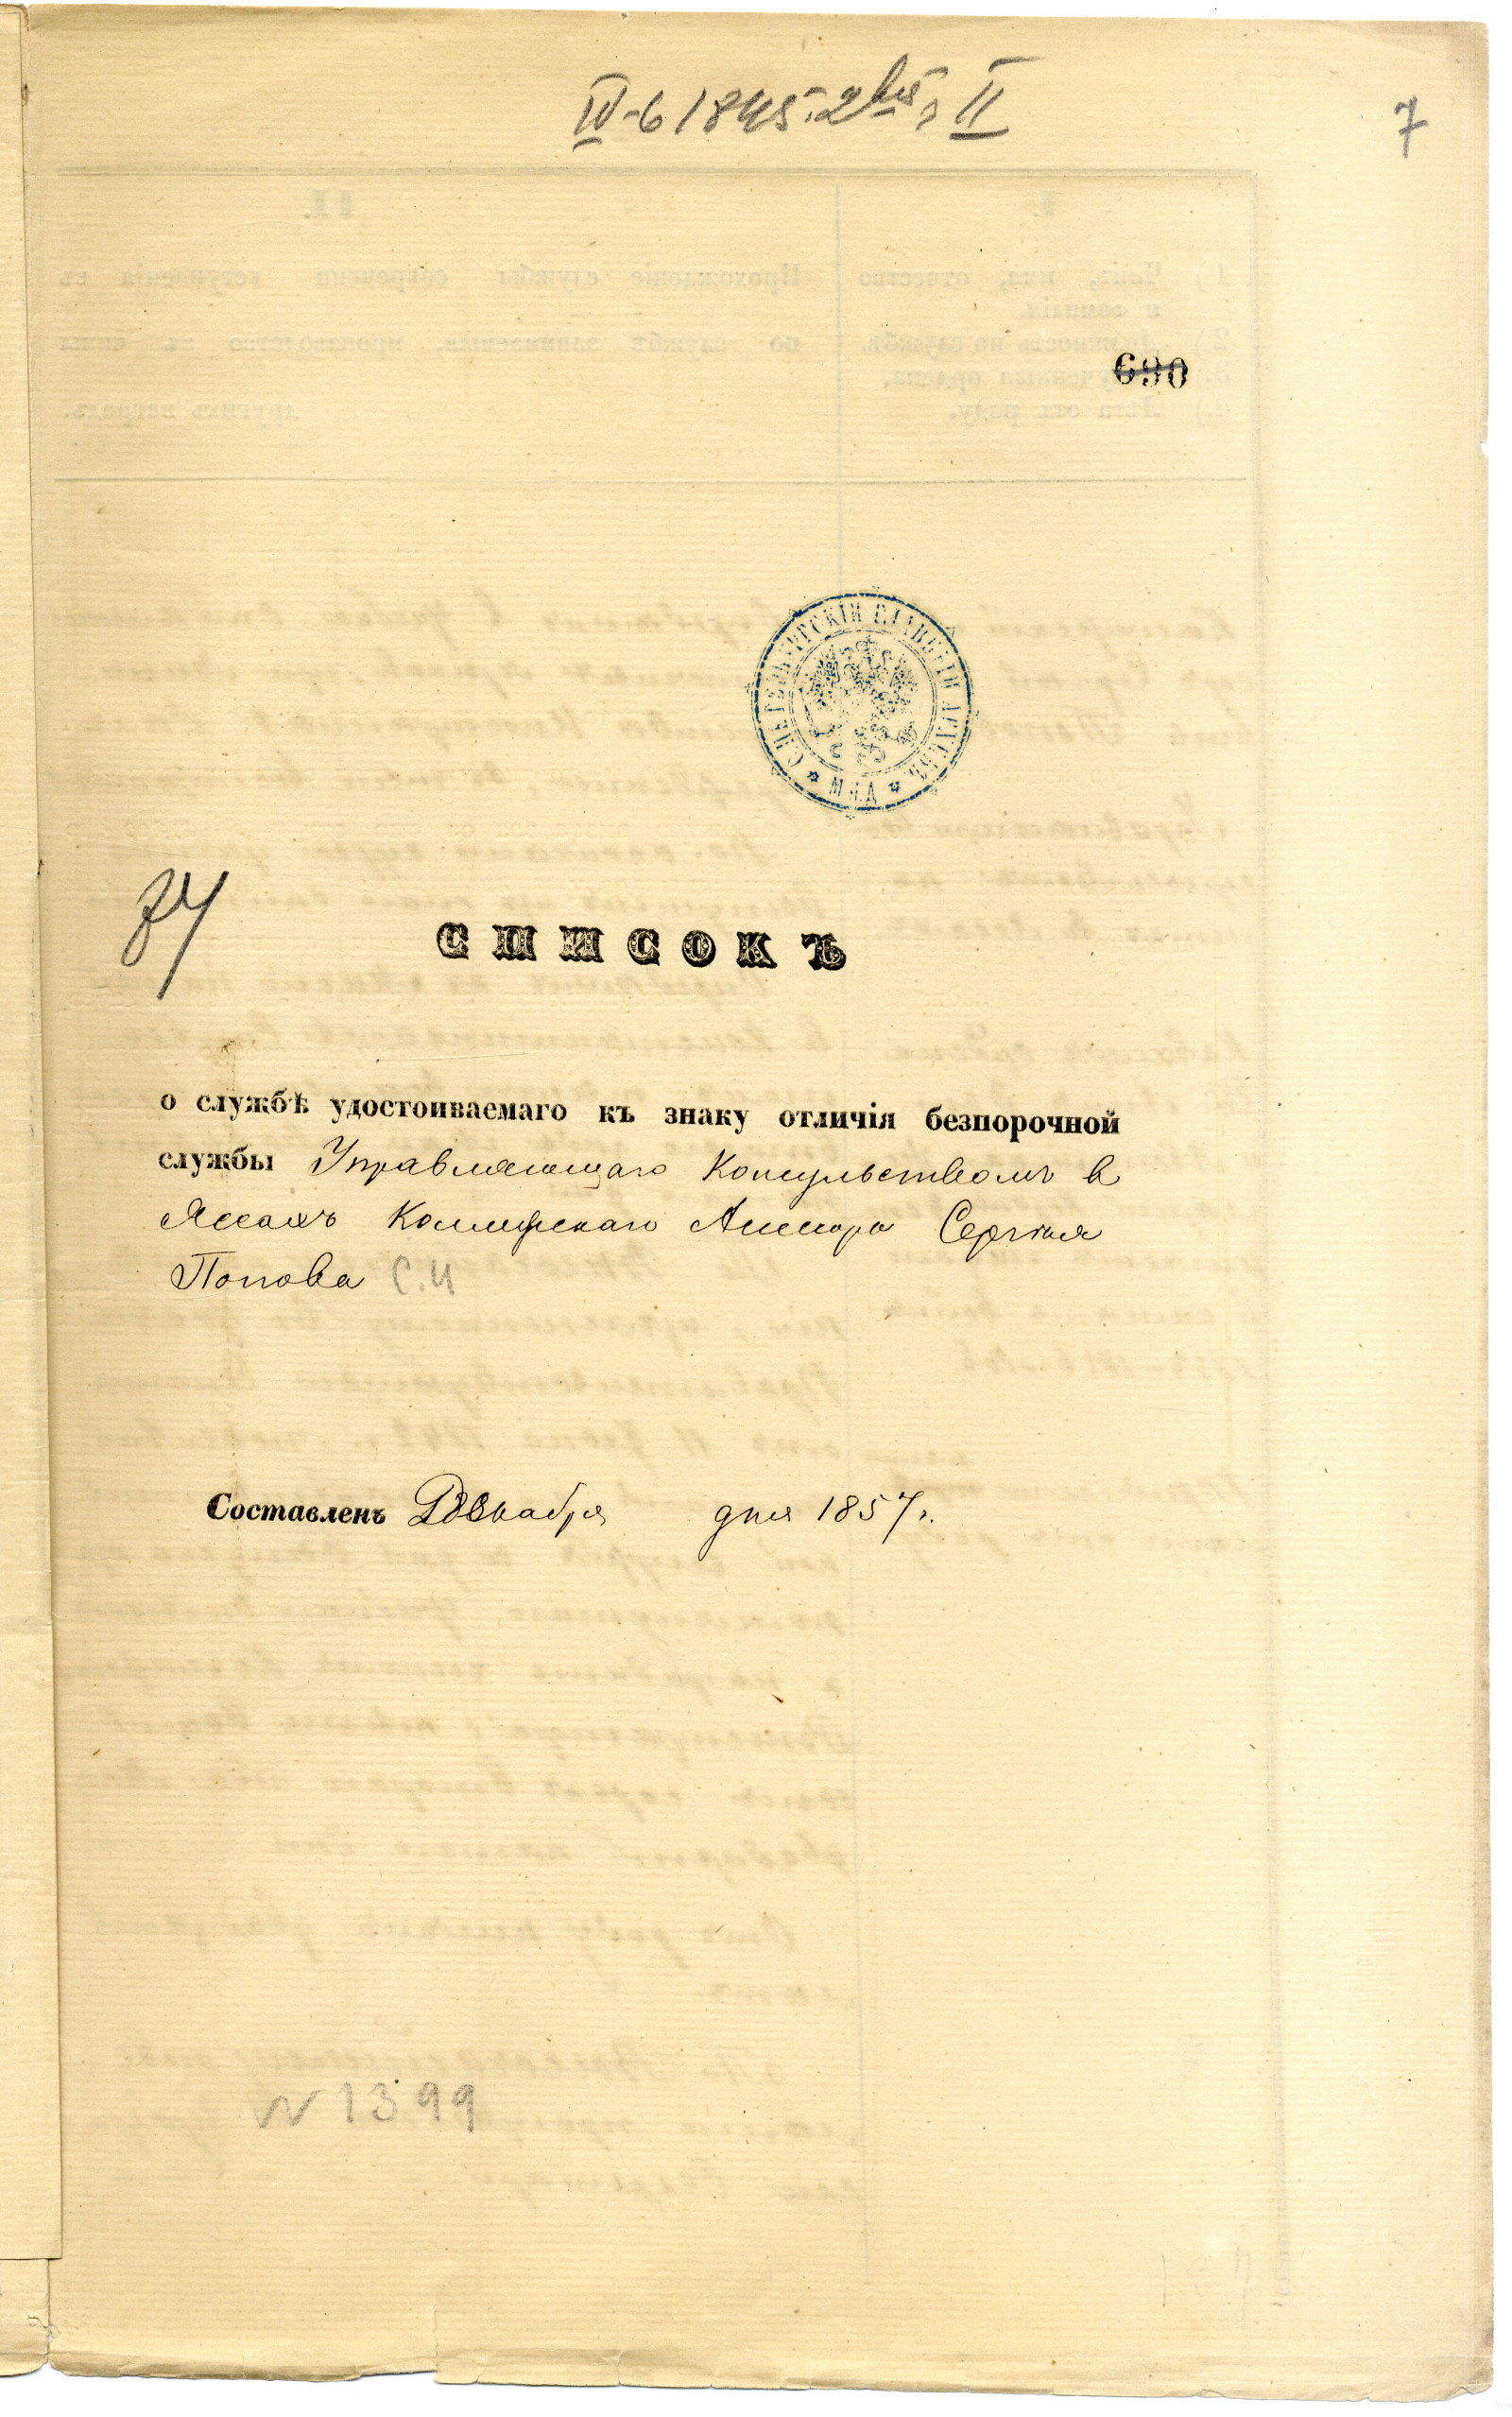 IV-6 1845. 2 II
7
690
С.ПЕТЕРБУРГСКІЙ ГЛАВНЫЙ АРХИВЪ * МИД *
34
СПИСОКЪ
о службѣ удостоиваемаго къ знаку отличія безпорочной
службы Управляющаго Консульствомъ в
Яссахъ Коллежскаго Ассесора Сергѣя
Попова С.И
Составленъ Декабря дня 1857 г.
N 1399